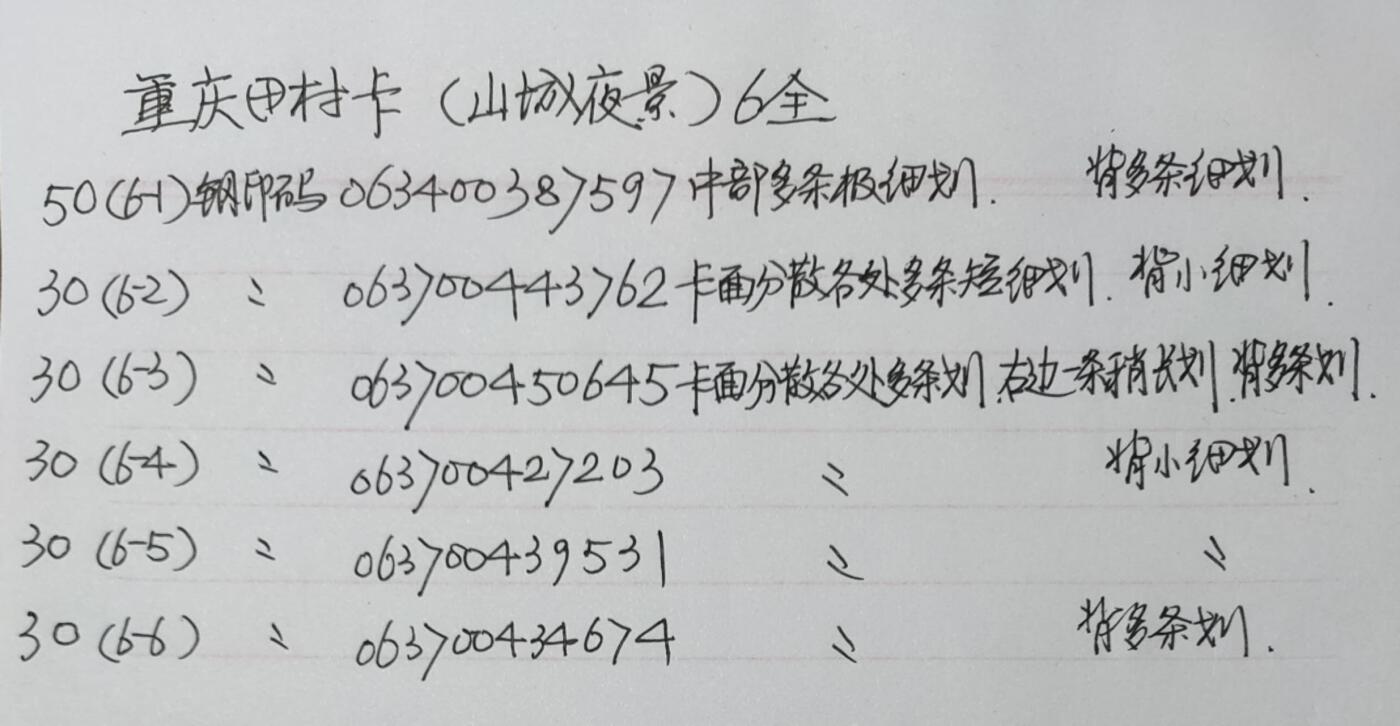 重庆田村卡（山城夜景）6全
50(6-1)钢印码 063400387597 中部多条极细划. 背多条细划.
30(6-2) 〃 063700443762 卡面分散各处多条短细划. 背小细划.
30(6-3) 〃 063700450645 卡面分散各处多条划.右边一条稍长划.背多条划.
30(6-4) 〃 063700427203 〃 背小细划.
30(6-5) 〃 063700439531 〃 〃
30(6-6) 〃 063700434674 〃 背多条划.